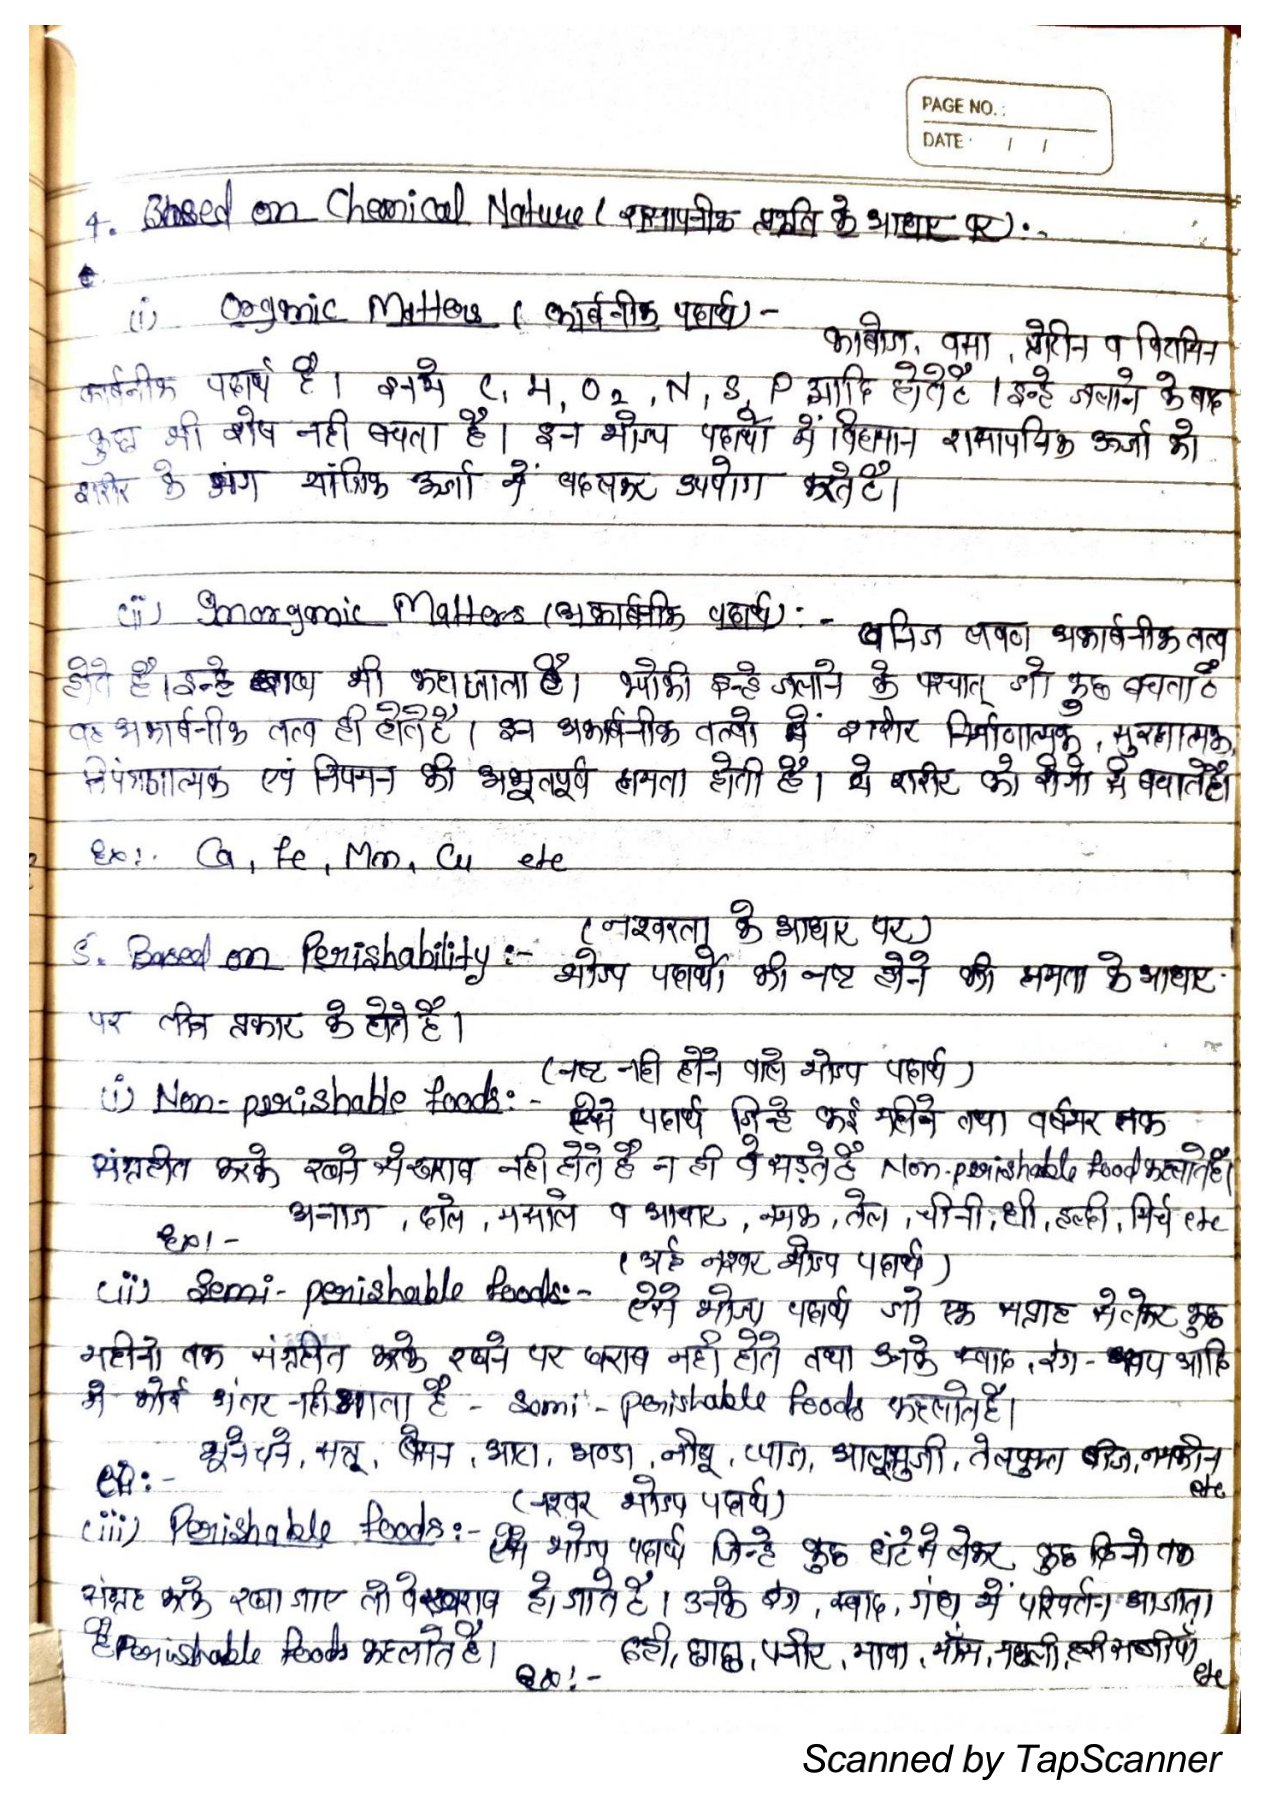 PAGE NO. :
DATE : / /
4. Based on Chemical Nature (रासायनीक प्रकृति के आधार पर) :-
(i) Organic Matters ( कार्बनीक पदार्थ) -
काबोज, वसा, प्रोटीन व विटामिन
कार्बनीक पदार्थ है। इनमे C, H, O2, N, S, P आदि होते है। इन्हे जलाने के बाद
कुछ भी शेष नही बचता है। इन भोज्य पदार्थो में विद्यमान रासायनिक ऊर्जा को
शरीर के अंग यांत्रिक ऊर्जा में बदलकर उपयोग करते है।
(ii) Inorganic Matters (अकार्बनीक पदार्थ) : -
खनिज लवण अकार्बनीक तत्व
होते है। इन्हे भी कहा जाता है। क्योकी इन्हे जलाने के पश्चात् जो कुछ बचता है
वह अकार्बनीक तत्व ही होते है। इन अकार्बनीक तत्वो में शरीर निर्माणात्मक, सुरक्षात्मक,
नियंत्रणात्मक एवं नियमन की अभूतपूर्व क्षमता होती है। ये शरीर को रोगो से बचाते है।
Ex:. Ca, Fe, Mn, Cu etc
(नश्वरता के आधार पर)
5. Based on Perishability :-
भोज्य पदार्थो की नष्ट होने की क्षमता के आधार
पर तीन प्रकार के होते है।
(नष्ट नही होने वाले भोज्य पदार्थ)
(i) Non-perishable foods: -
ऐसे पदार्थ जिन्हे कई महीने तथा वर्षभर तक
संग्रहीत करके रखने से खराब नही होते है न ही वे सड़ते है Non-perishable food कहलाते है।
अनाज, दाले, मसाले व आचार, नमक, तेल, चीनी, घी, हल्दी, मिर्च etc
Ex! -
(अर्द्ध नश्वर भोज्य पदार्थ)
(ii) Semi- perishable foods:-
ऐसे भोज्य पदार्थ जो एक सप्ताह से लेकर कुछ
महीनो तक संग्रहीत करके रखने पर खराब नही होते तथा उनके स्वाद, रंग-रूप आदि
मे कोई अंतर नही आता है - Semi - perishable foods कहलाते है।
भूने चने, सत्तू, बेसन, आटा, अण्डा, नीबू, प्याज, आलूभुजी, तेलयुक्त बीज, नमकीन
etc
ex:-
(नश्वर भोज्य पदार्थ)
(iii) Perishable foods:-
ऐसे भोज्य पदार्थ जिन्हे कुछ घंटे से लेकर कुछ दिनो तक
संग्रह करके रखा जाए तो वे खराब हो जाते है। उनके रंग, स्वाद, गंध में परिवर्तन आ जाता
है Perishable foods कहलाते है।
दही, छाछ, पनीर, मावा, मांस, मछली, हरी सब्जीयाँ
etc
ex!-
Scanned by TapScanner